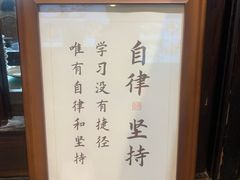 自律
坚持
学习没有捷径
唯有自律和坚持